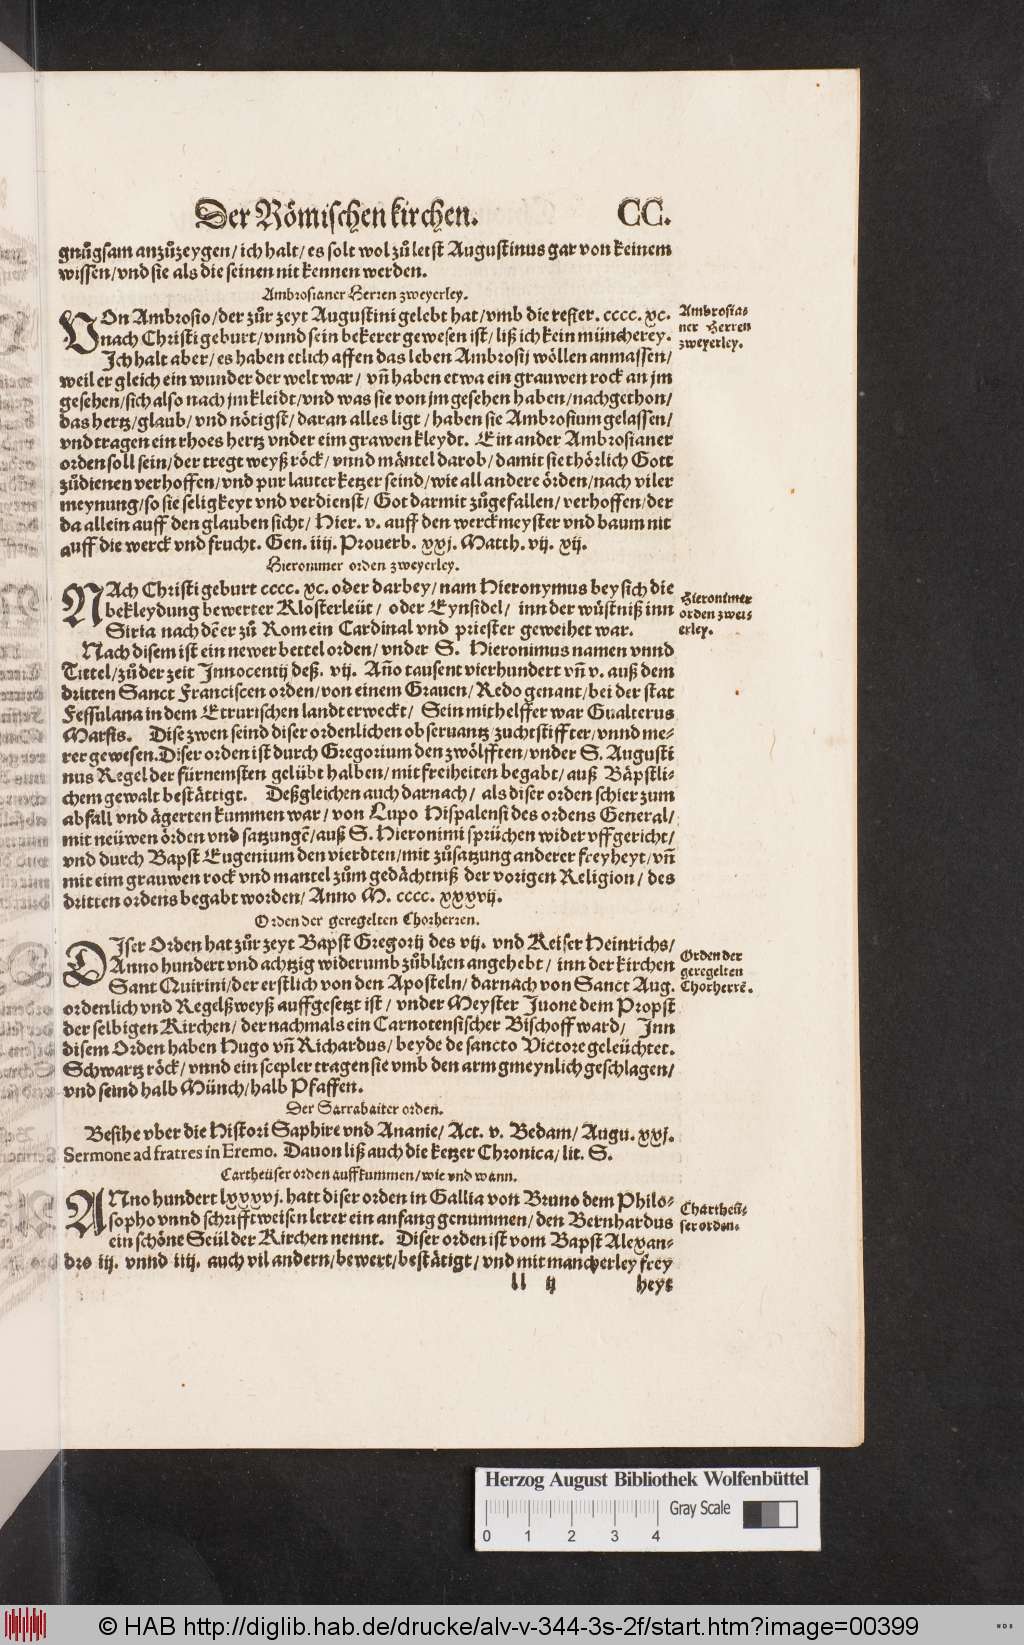 Der Römischen kirchen. CC.
gnůgsam anzůzeygen/ ich halt/ es solt wol zů letst Augustinus gar von keinem
wissen/ vnd sie als die seinen nit kennen werden.
Ambrosianer Herren zweyerley.
VOn Ambrosio/ der zůr zeyt Augustini gelebt hat/ vmb die refier. cccc. xc.
nach Christi geburt/ vnnd sein bekerer gewesen ist/ liß ich kein müncherey.
Ambrosia-
ner Herren
zweyerley.
Ich halt aber/ es haben etlich affen das leben Ambrosij wöllen anmassen/
weil er gleich ein wunder der welt war/ vñ haben etwa ein grauwen rock an jm
gesehen/ sich also nach jm kleidt/ vnd was sie von jm gesehen haben/ nachgethon/
das hertz/ glaub/ vnd nötigst/ daran alles ligt/ haben sie Ambrosium gelassen/
vnd tragen ein rhoes hertz vnder eim grawen kleydt. Ein ander Ambrosianer
orden soll sein/ der tregt weyß röck/ vnnd mäntel darob/ damit sie thörlich Gott
zůdienen verhoffen/ vnd pur lauter ketzer seind/ wie all andere örden/ nach viler
meynung/ so sie seligkeyt vnd verdienst/ Got darmit zůgefallen/ verhoffen/ der
da allein auff den glauben sicht/ Hier. v. auff den werckmeyster vnd baum nit
auff die werck vnd frucht. Gen. iiij. Prouerb. xxj. Matth. vij. xij.
Hieronimer orden zweyerley.
NAch Christi geburt cccc. xc. oder darbey/ nam Hieronymus bey sich die
bekleydung bewerter Klosterleüt/ oder Eynsidel/ inn der wůstniß inn
Siria nach dẽ er zů Rom ein Cardinal vnd priester geweihet war.
Hieronimer
orden zwei-
erley.
Nach disem ist ein newer bettel orden/ vnder S. Hieronimus namen vnnd
Tittel/ zů der zeit Innocentij deß. vij. Año tausent vierhundert vñ v. auß dem
dritten Sanct Franciscen orden/ von einem Grauen/ Redo genant/ bei der stat
Fessulana in dem Etrurischen landt erweckt/ Sein mithelffer war Gualterus
Marsis. Dise zwen seind diser ordenlichen obseruantz/ zuchtstiffter/ vnnd me-
rer gewesen. Diser orden ist durch Gregorium den zwölfften/ vnder S. Augusti
nus Regel der fürnemsten gelübt halben/ mit freiheiten begabt/ auß Bäpstli-
chem gewalt bestättigt. Deßgleichen auch darnach/ als diser orden schier zum
abfall vnd ägerten kummen war/ von Lupo Hispalensi des ordens General/
mit neüwen örden vnd satzungẽ/ auß S. Hieronimi sprüchen wider vffgericht/
vnd durch Bapst Eugenium den vierdten/ mit zůsatzung anderer freyheyt/ vñ
mit eim grauwen rock vnd mantel zům gedächtniß der vorigen Religion/ des
dritten ordens begabt worden/ Anno M. cccc. xxxvij.
Orden der geregelten Chorherren.
DIser Orden hat zůr zeyt Bapst Gregorij des vij. vnd Keiser Heinrichs/
Anno hundert vnd achtzig widerumb zůblüen angehebt/ inn der kirchen
Sant Quirini/ der erstlich von den Aposteln/ darnach von Sanct Aug.
Orden der
geregelten
Chorherrẽ.
ordenlich vnd Regelßweyß auffgesetzt ist/ vnder Meyster Juone dem Propst
der selbigen Kirchen/ der nachmals ein Carnotensischer Bischoff ward/ Inn
disem Orden haben Hugo vñ Richardus/ beyde de sancto Victore geleüchtet.
Schwartz röck/ vnnd ein scepler tragen sie vmb den arm gmeynlich geschlagen/
vnd seind halb Münch/ halb Pfaffen.
Der Sarrabaiter orden.
Besihe vber die Histori Saphire vnd Ananie/ Act. v. Bedam/ Augu. xxj.
Sermone ad fratres in Eremo. Dauon liß auch die ketzer Chronica/ lit. S.
Cartheüser orden auffkummen/ wie vnd wann.
ANno hundert lxxxvj. hatt diser orden in Gallia von Bruno dem Philo-
sopho vnnd schrifftweisen lerer ein anfang genummen/ den Bernhardus
ein schöne Seül der Kirchen nennt. Diser orden ist vom Bapst Alexan-
Chartheü-
ser orden.
dro iij. vnnd iiij. auch vil andern/ bewert/ bestätigt/ vnd mit mancherley frey
ll ij heyt
Herzog August Bibliothek Wolfenbüttel
Gray Scale
0 1 2 3 4
© HAB http://diglib.hab.de/drucke/alv-v-344-3s-2f/start.htm?image=00399